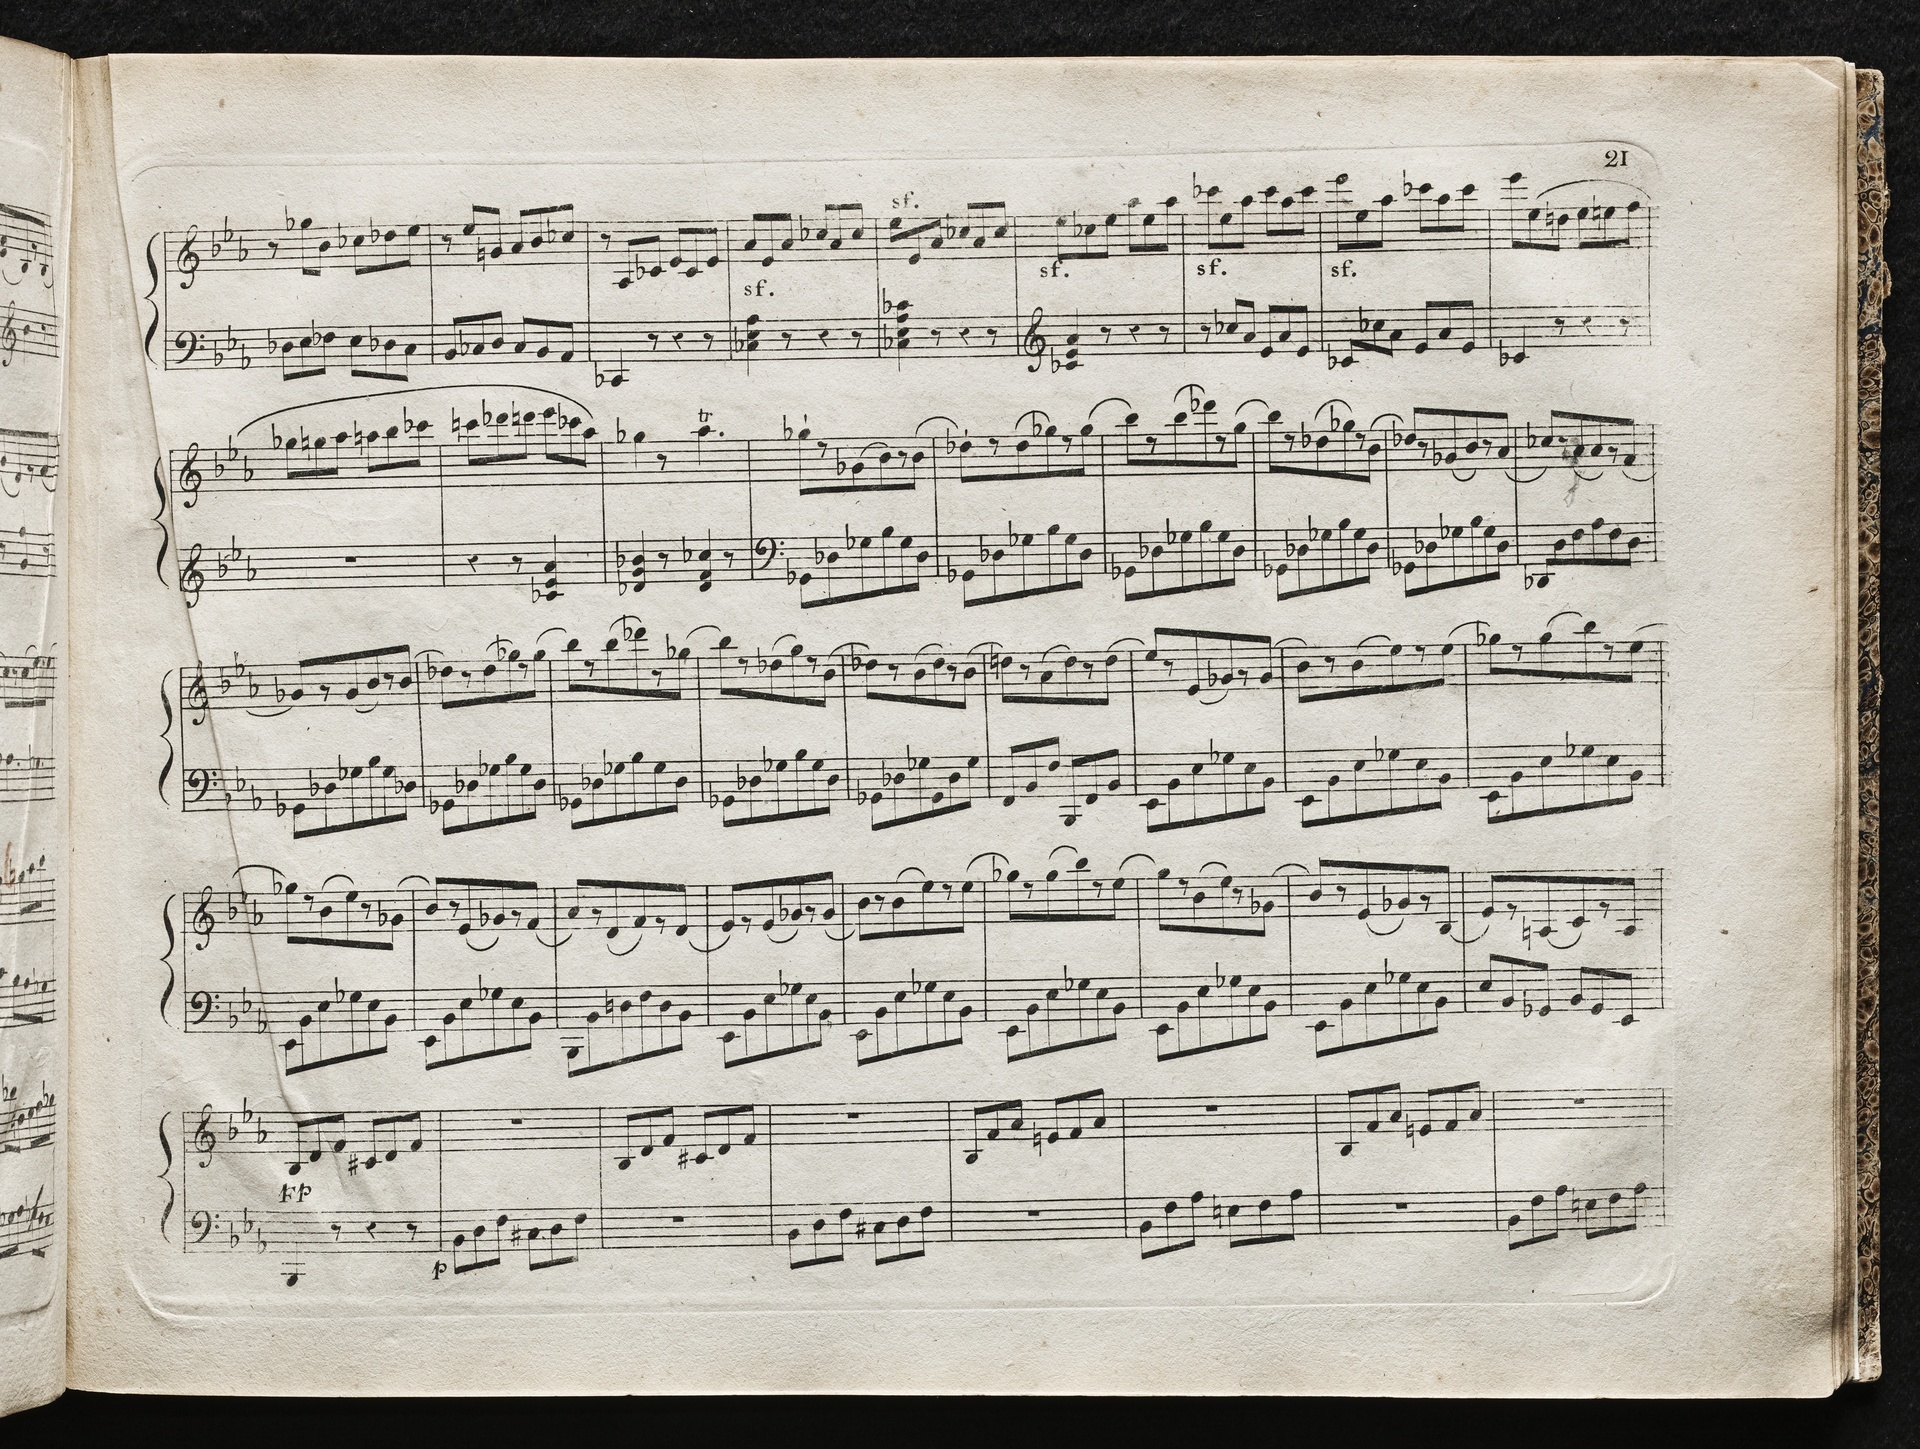 21
sf.
sf.
sf.
sf.
sf.
tr
Fp
p